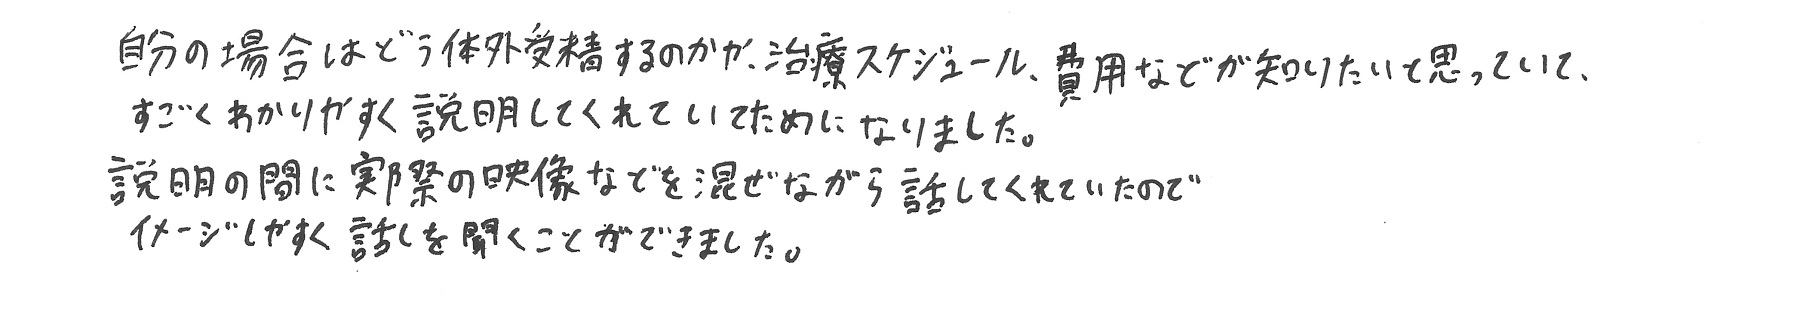 自分の場合はどう体外受精するのかや、治療スケジュール、費用などが知りたいと思っていて、
すごくわかりやすく説明してくれていてためになりました。
説明の間に実際の映像などを混ぜながら話してくれていたので
イメージしやすく話しを聞くことができました。